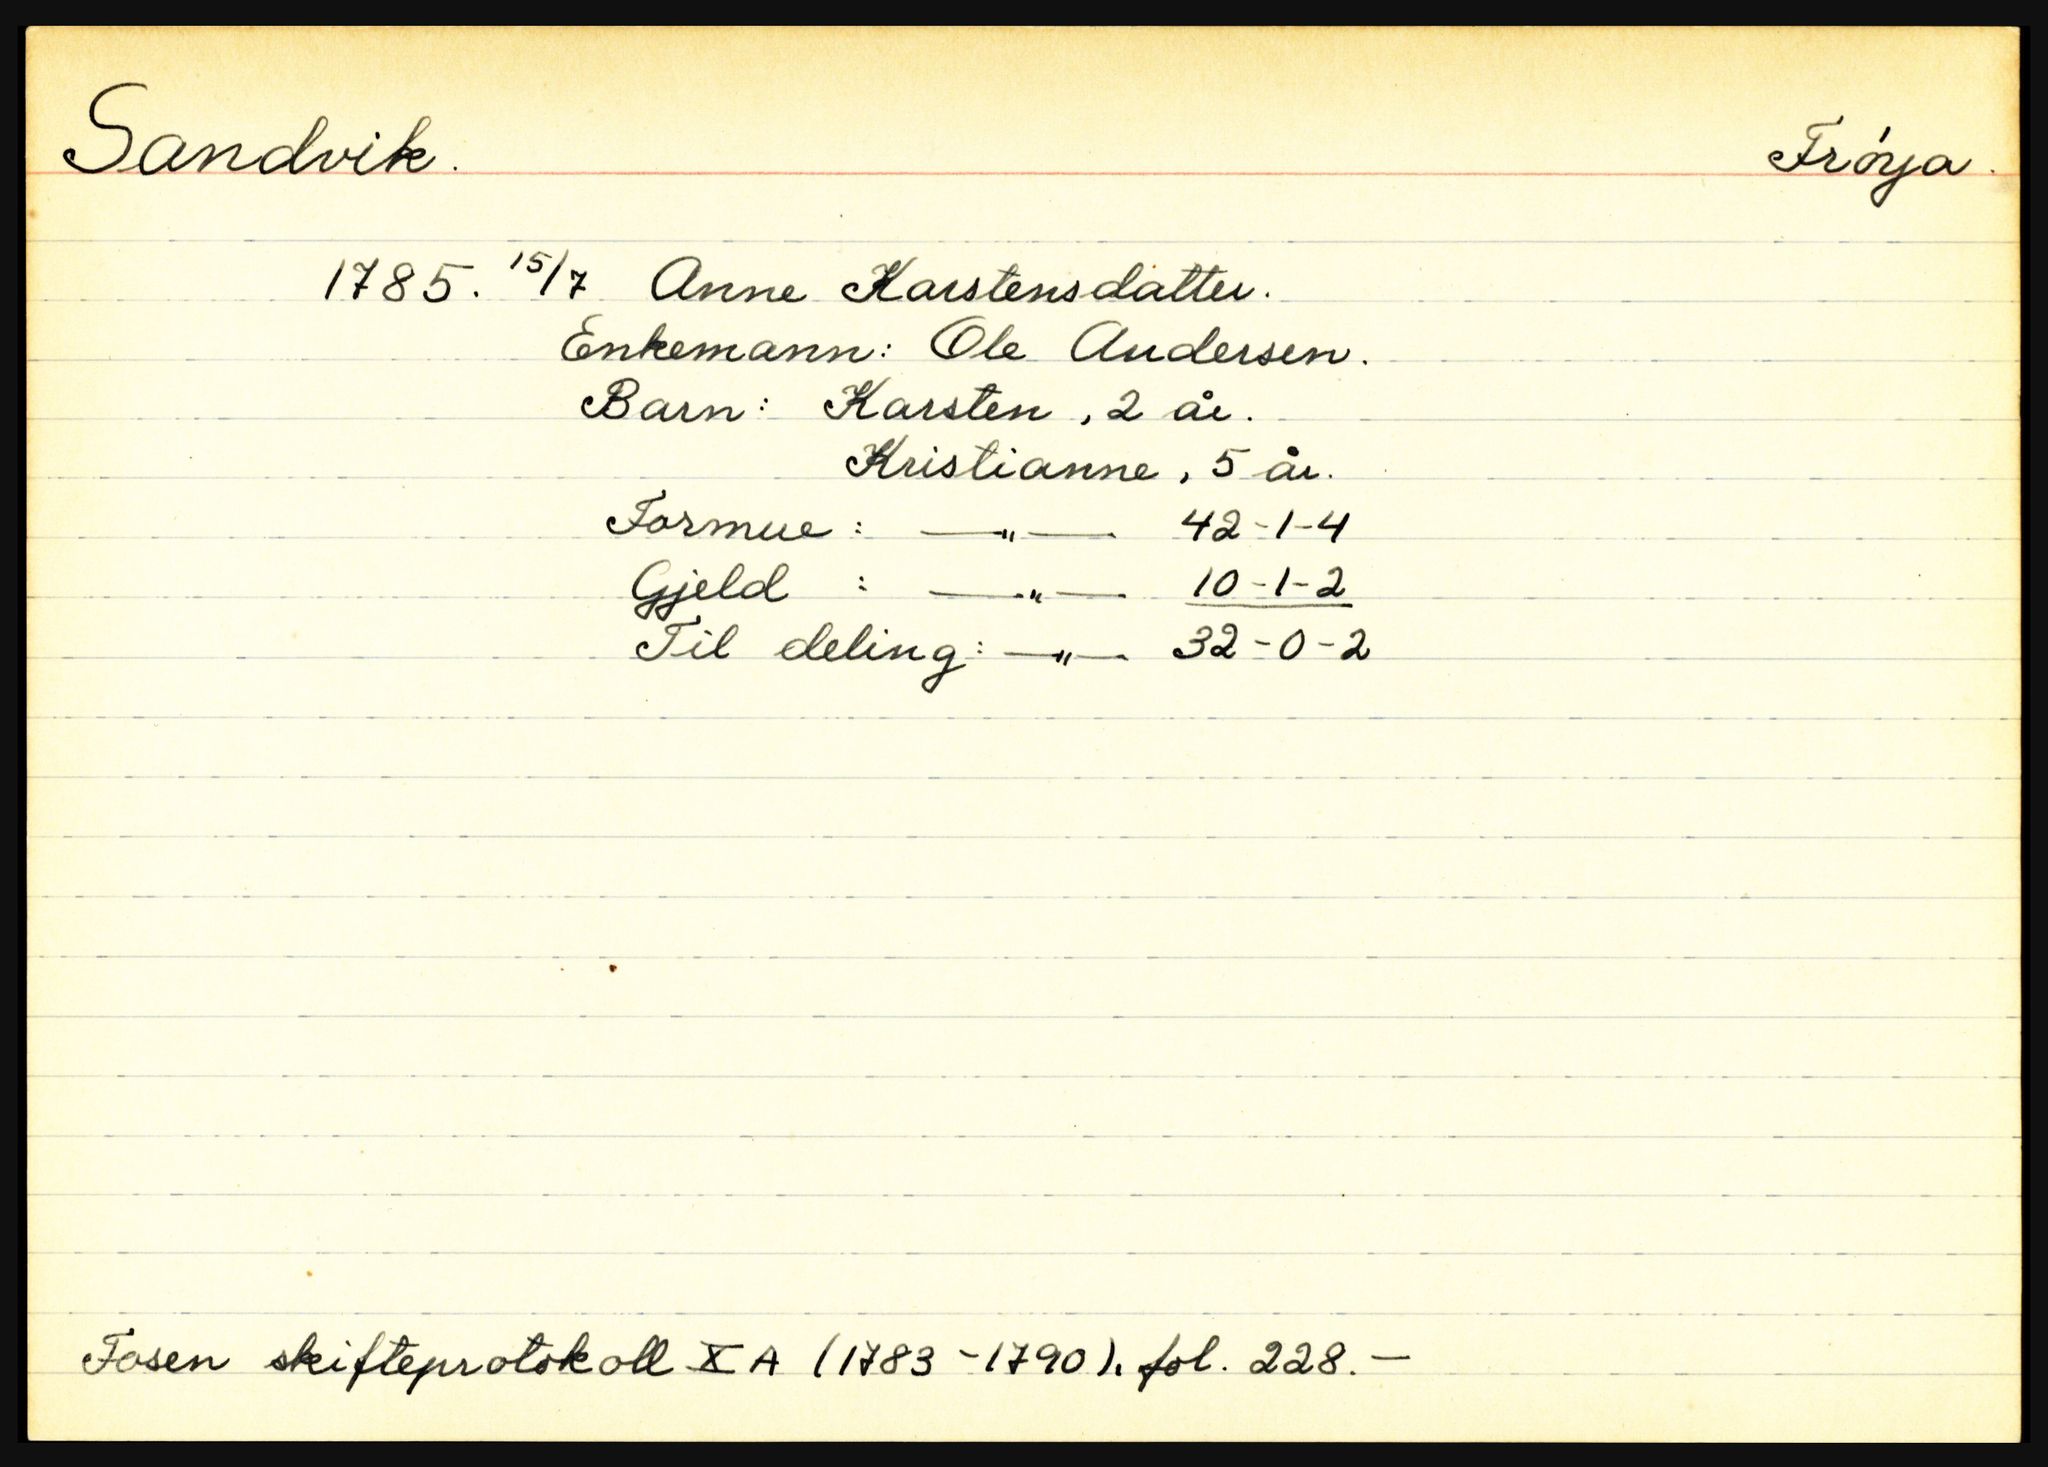 Sandvik.
Frøya.
1785. 15/7 Anne Karstensdatter.
Enkemann: Ole Andersen.
Barn: Karsten, 2 år.
Kristianne, 5 år.
Formue: —"— 42-1-4
Gjeld : —"— 10-1-2
Til deling: —"— 32-0-2
Fosen skifteprotokoll X A (1783-1790), fol. 228.—